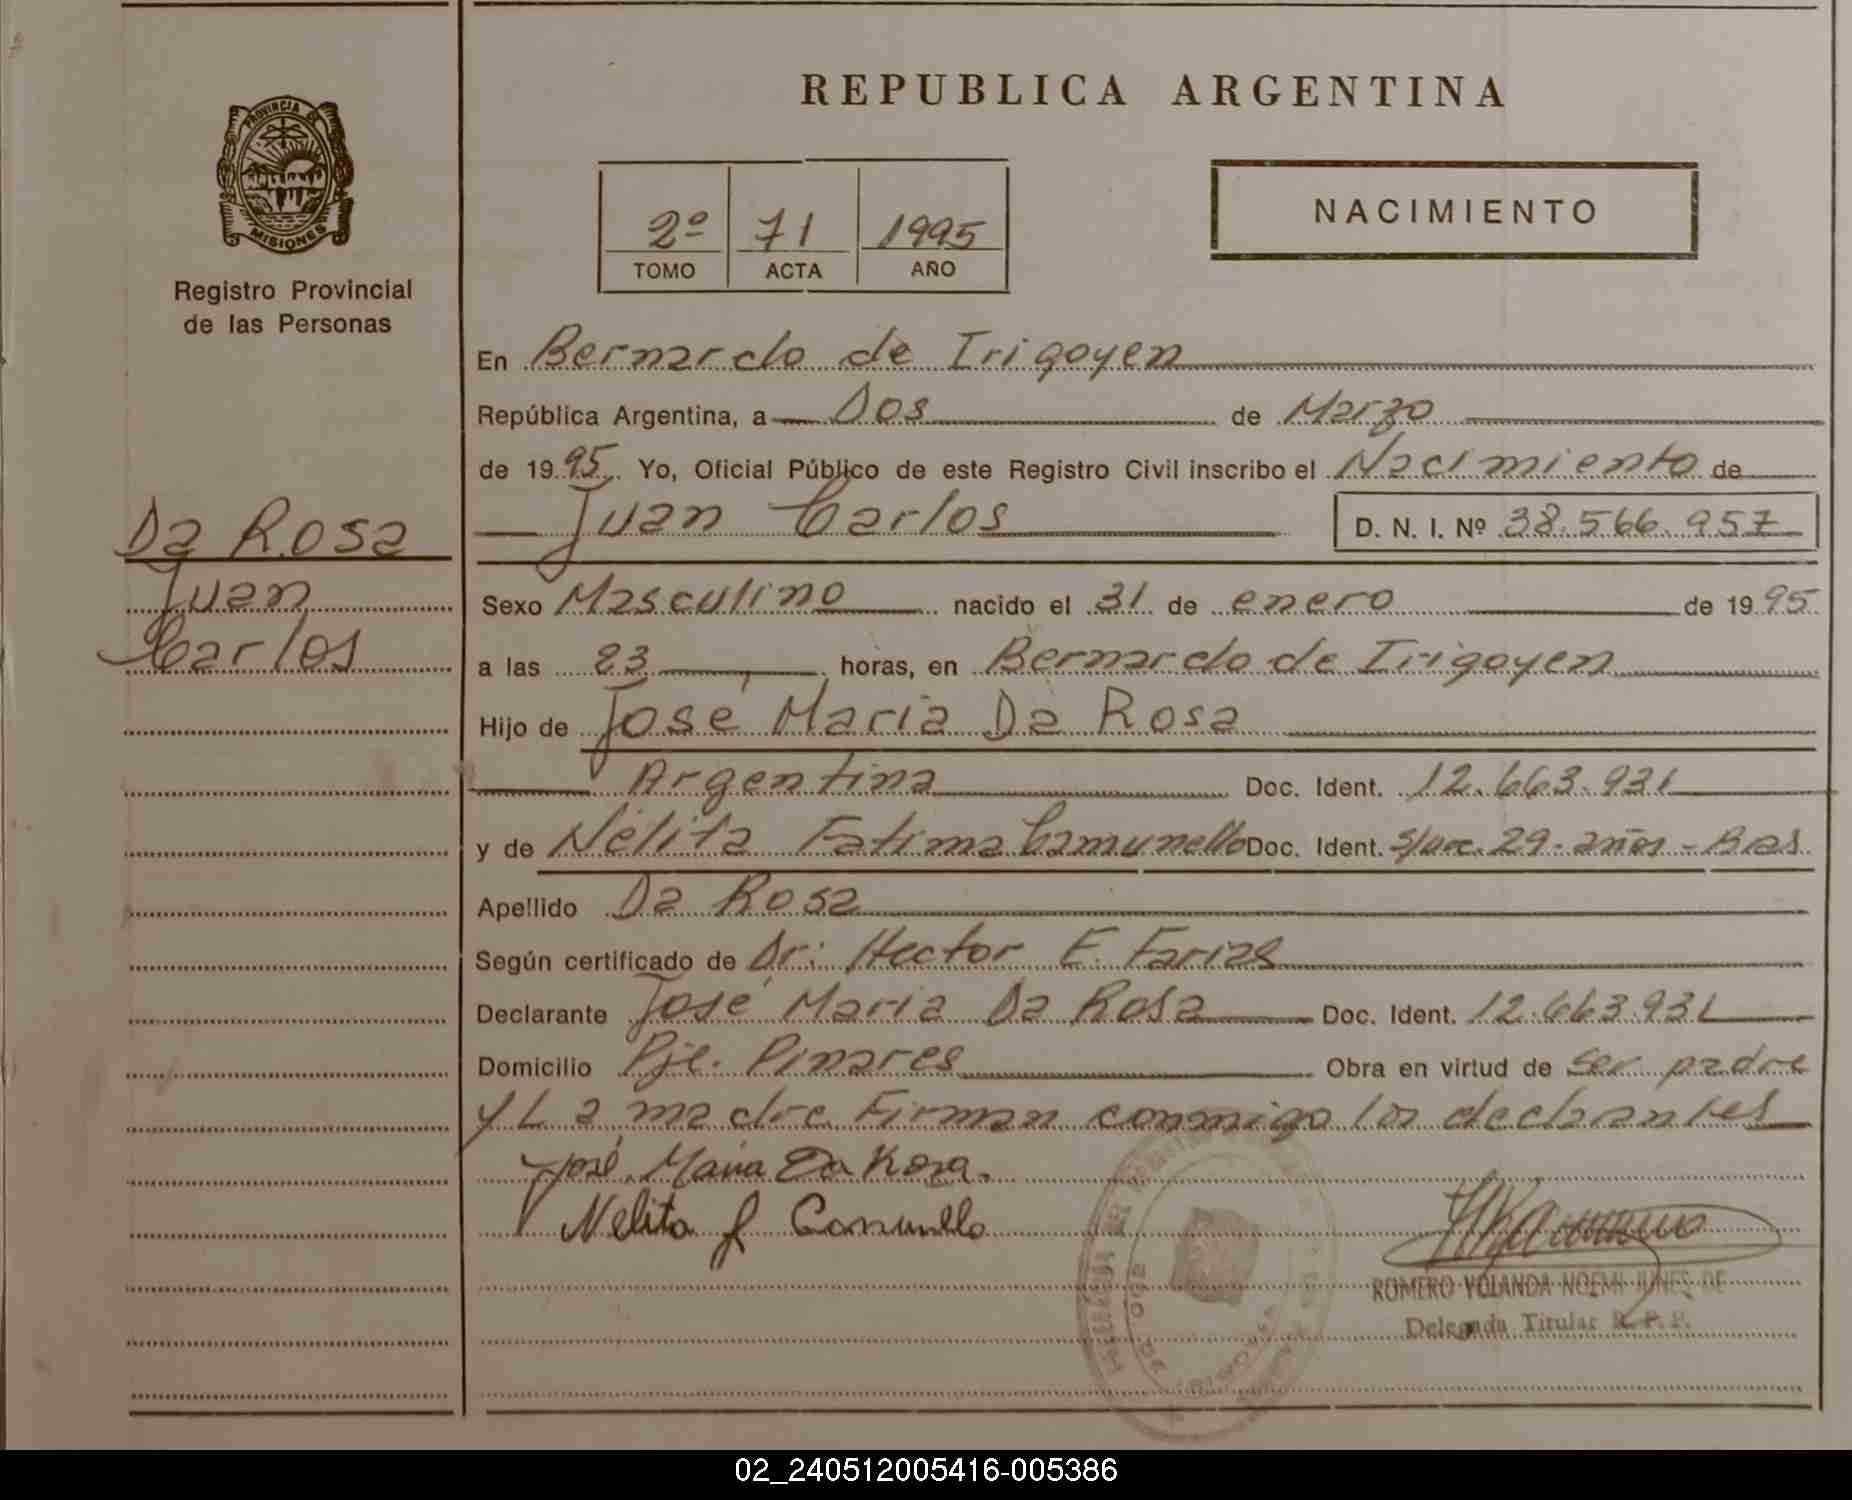 REPUBLICA ARGENTINA
PROVINCIA DE
MISIONES
Registro Provincial
de las Personas
2º 71 1995
TOMO ACTA AÑO
NACIMIENTO
Da Rosa
Juan
Carlos
En Bernardo de Irigoyen
República Argentina, a Dos de Marzo
de 1995 Yo, Oficial Público de este Registro Civil inscribo el Nacimiento de
Juan Carlos D. N. I. Nº 38.566.957
Sexo Masculino nacido el 31 de enero de 1995
a las 23 horas, en Bernardo de Irigoyen
Hijo de José Maria Da Rosa
Argentina Doc. Ident. 12.663.931
y de Nélita Fatima Camunello Doc. Ident. 29 años - Bras
Apellido Da Rosa
Según certificado de Dr: Hector E. Farias
Declarante José Maria Da Rosa Doc. Ident. 12.663.931
Domicilio Pje. Pinares Obra en virtud de ser padre
y La madre Firman conmigo los declarantes
José Maria Da Rosa.
Nelita f Camunello
ROMERO YOLANDA NOEMI JUNES DE
Delegada Titular R. P. P.
02_240512005416-005386